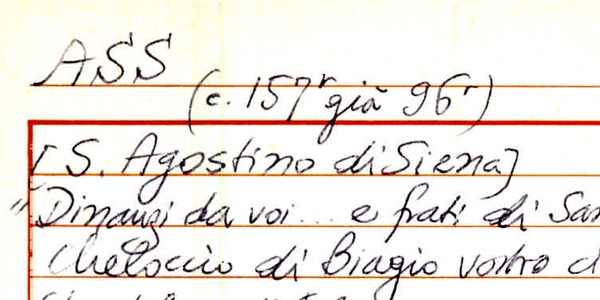 ASS
(c. 157r già 96r)
[S. Agostino di Siena]
"Dinanzi da voi... e frati di San
Cheloccio di Biagio vostro